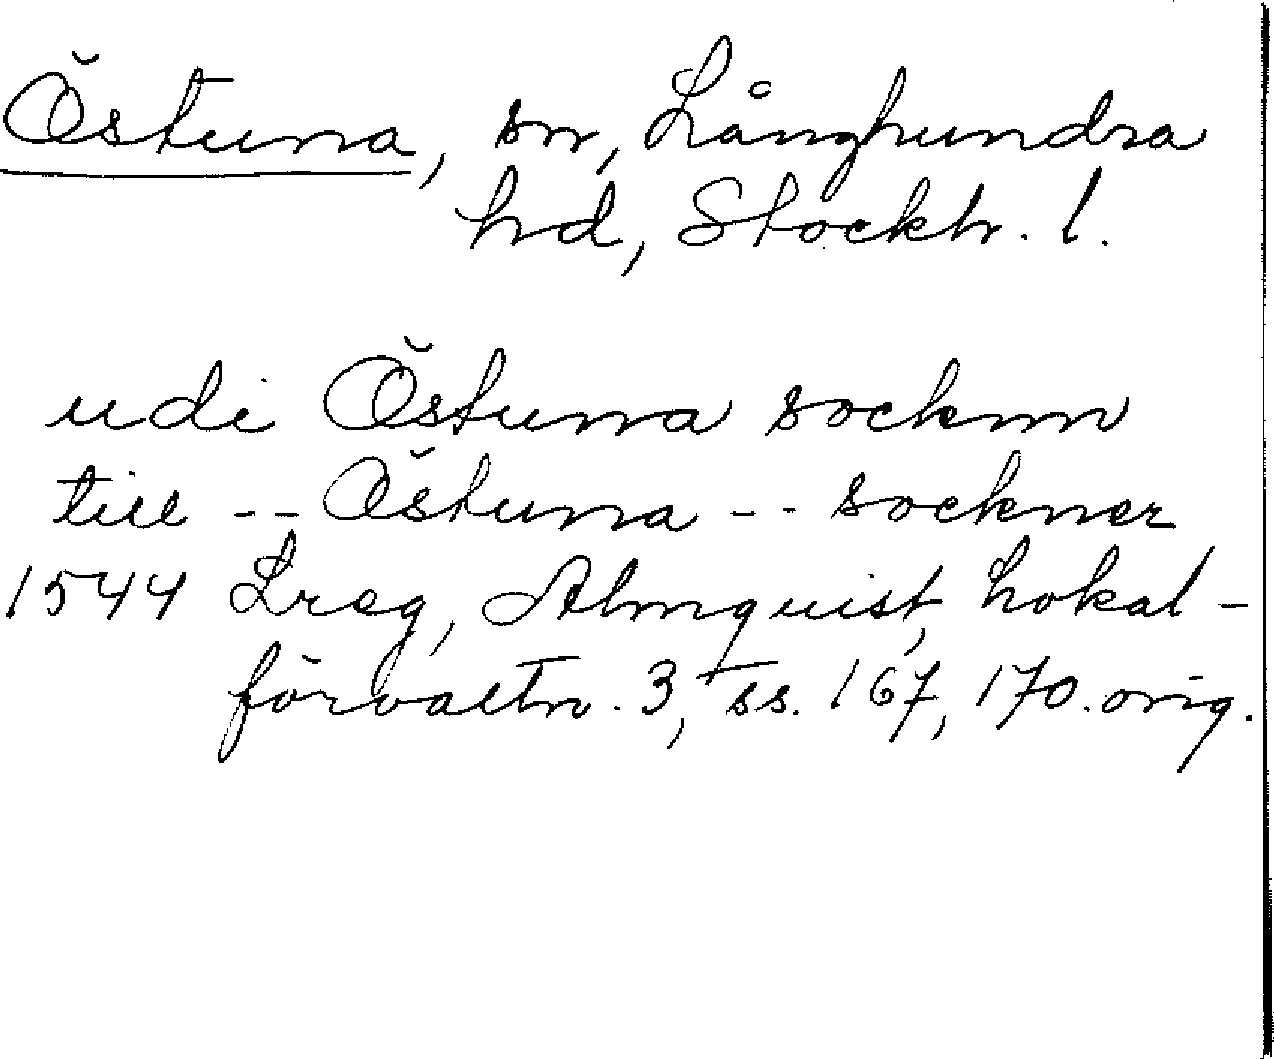 Östuna, sn, Långhundra
hd, Stockh. l.
udi Östuna socknn
till -- Östuna -- sockner
1544 Lreg, Almquist, Lokal-
förvaltn. 3, ss. 167, 170. orig.